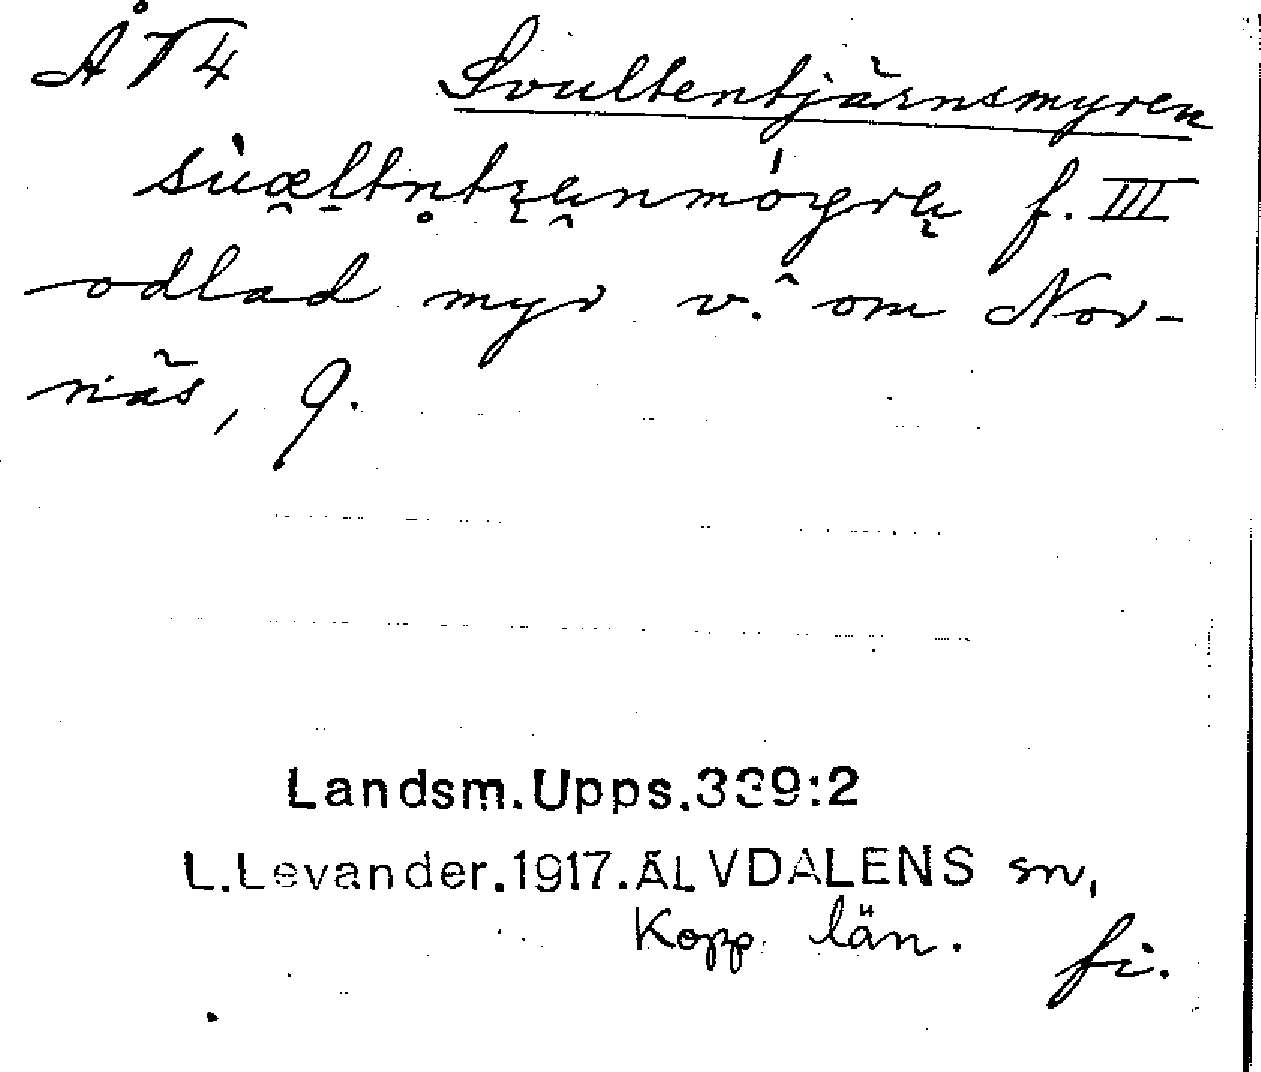 ÅT4 Svultentjärnsmyren
f. III
odlad myr v. om Nor-
näs, 9.
Landsm.Upps.339:2
L.Levander.1917.ÄLVDALENS sn,
Kopp. län.
fi.